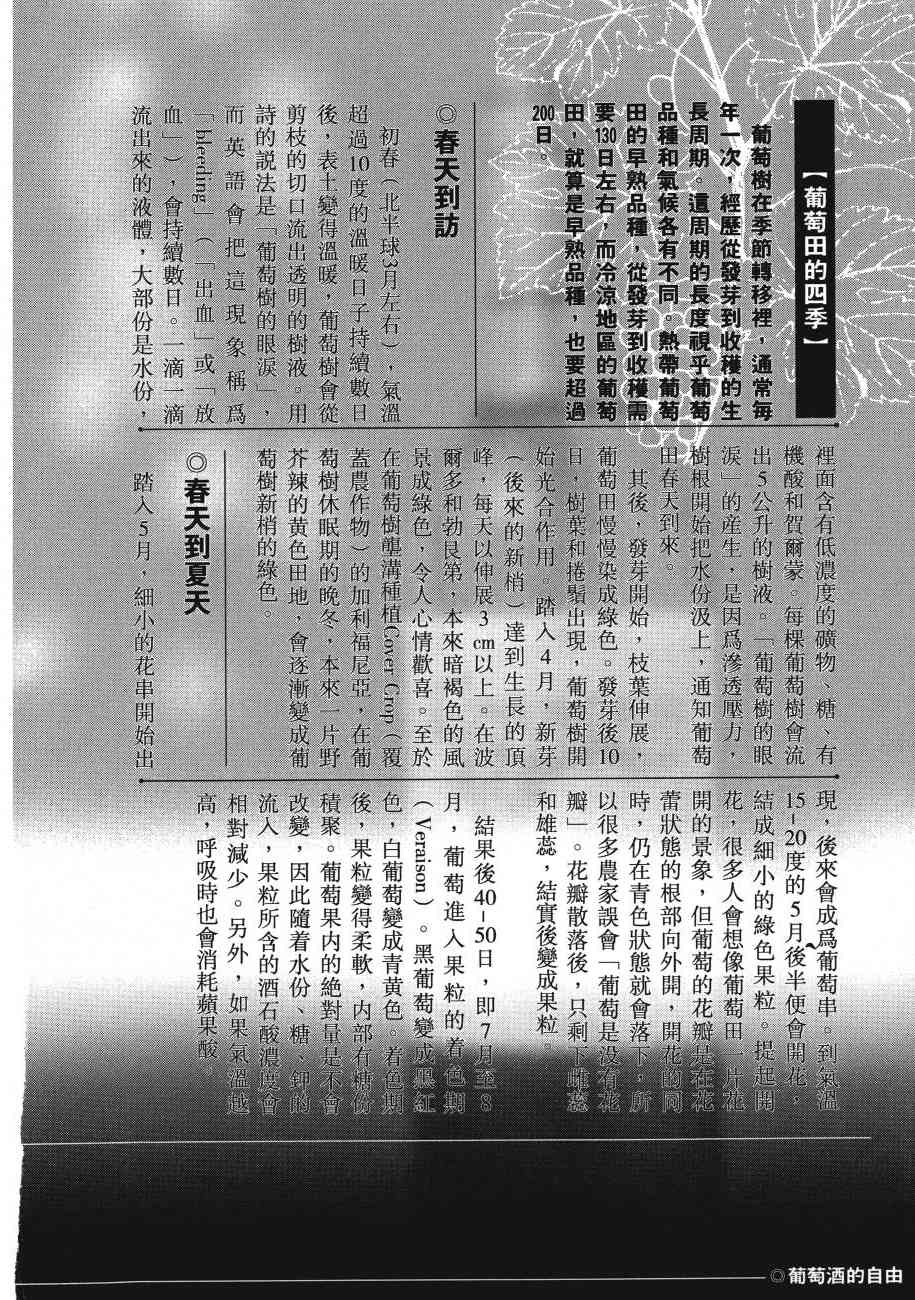 【葡萄田的四季】
葡萄樹在季節轉移裡，通常每
年一次，經歷從發芽到收穫的生
長周期。這周期的長度視乎葡萄
品種和氣候各有不同。熱帶葡萄
田的早熟品種，從發芽到收穫需
要130日左右，而冷涼地區的葡萄
田，就算是早熟品種，也要超過
200日。
◎春天到訪
初春（北半球3月左右），氣溫
超過10度的溫暖日子持續數日
後，表土變得溫暖，葡萄樹會從
剪枝的切口流出透明的樹液。用
詩的説法是「葡萄樹的眼淚」，
而英語會把這現象稱爲
「bleeding」（「出血」或「放
血」），會持續數日。一滴一滴
流出來的液體，大部份是水份，
裡面含有低濃度的礦物、糖、有
機酸和賀爾蒙。每棵葡萄樹會流
出5公升的樹液。「葡萄樹的眼
淚」的産生，是因爲滲透壓力，
樹根開始把水份汲上，通知葡萄
田春天到來。
其後，發芽開始，枝葉伸展，
葡萄田慢慢染成綠色。發芽後10
日，樹葉和捲鬚出現，葡萄樹開
始光合作用　踏入4月，新芽
（後來的新梢）達到生長的頂
峰，每天以伸展3cm以上。在波
爾多和勃艮第，本來暗褐色的風
景成綠色，令人心情歡喜。至於
在葡萄樹壟溝種植Cover Crop（覆
蓋農作物）的加利福尼亞，在葡
萄樹休眠期的晚冬，本來一片野
芥辣的黄色田地，會逐漸變成葡
萄樹新梢的綠色。
◎春天到夏天
踏入5月，細小的花串開始出
現，後來會成爲葡萄串。到氣溫
15-20度的5月後半便會開花，
結成細小的綠色果粒。提起開
花，很多人會想像葡萄田一片花
開的景象，但葡萄的花瓣是在花
蕾狀態的根部向外開，開花的同
時，仍在青色狀態就會落下，所
以很多農家誤會「葡萄是没有花
瓣」。花瓣散落後，只剩下雌蕊
和雄蕊，結實後變成果粒。
結果後40-50日，即7月至8
月，葡萄進入果粒的着色期
（Veraison）。黑葡萄變成黑紅
色，白葡萄變成青黄色。着色期
後，果粒變得柔軟，内部有糖份
積聚。葡萄果内的絶對量是不會
改變，因此隨着水份、糖、鉀的
流入，果粒所含的酒石酸濃度會
相對減少。另外，如果氣溫越
高，呼吸時也會消耗蘋果酸。
◎葡萄酒的自由